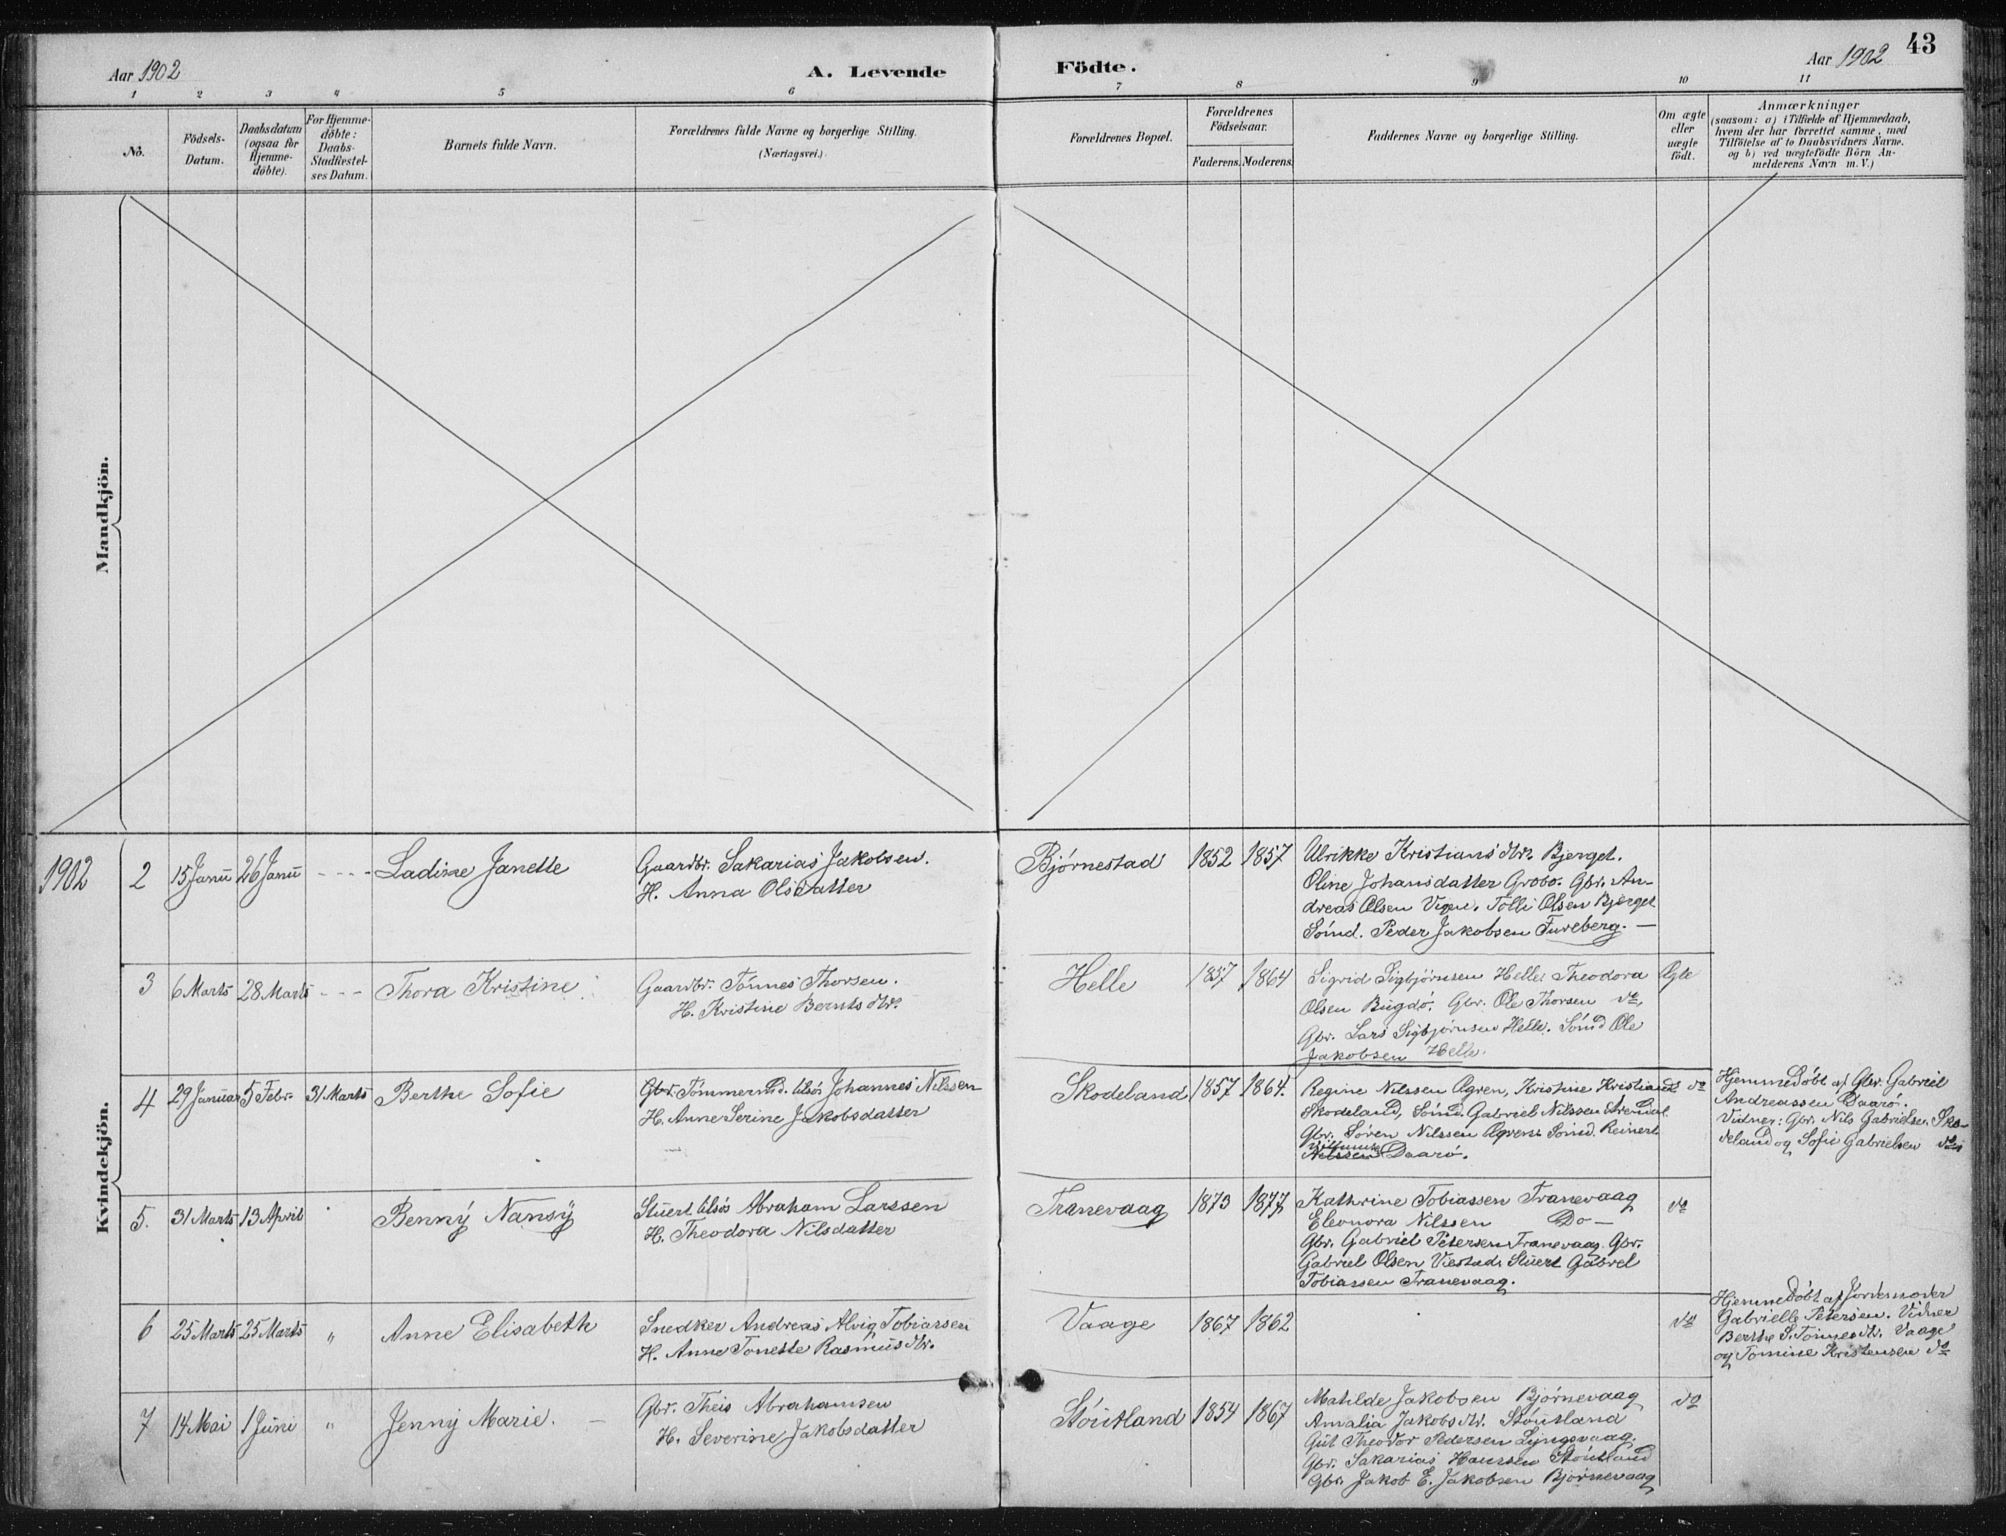 Aar 1902
A. Levende
Födte.
Aar 1902
43
1 2 3 4 5 6 7 8 9 10 11
No.
Födsels-
Datum.
Daabsdatum
(ogsaa for
Hjemme-
döbte).
For Hjemme-
döbte:
Daabs-
Stadfæstel-
ses Datum.
Barnets fulde Navn.
Forældrenes fulde Navne og borgerlige Stilling.
(Næringsvei.)
Forældrenes Bopæl.
Forældrenes
Födselsaar.
Faderens. Moderens.
Faddernes Navne og borgerlige Stilling.
Om ægte
eller
uægte
födt.
Anmærkninger
(saasom: a) i Tilfælde af Hjemmedaab,
hvem der har forrettet samme, med
Tilföielse af to Daabsvidners Navne.
og b) ved uægtefödte Börn An-
melderens Navn m. V.)
Mandkjön.
Kvindekjön.
1902
2 15 Janu 26 Janu - - - - Ladine Janette
Gaardbr. Sakarias Jakobsen.
H. Anna Olsdatter
Bjørnestad 1852 1857
Ulrikke Kristiansdtr. Bjerget.
Oline Johansdatter Grobo. Gbr. An-
dreas Olsen Vigen. Tolli Olsen Bjerget
Sømd. Peder Jakobsen Fureberg. —
3 6 Marts 28 Marts - - - Thora Kristine
Gaardbr. Tønnes Thorsen.
H. Kristine Berntsdtr.
Helle 1857 1864
Sigrid Sigbjørnsen Helle. Theodora
Olsen Bugdø. Gbr. Ole Thorsen do,
Gbr. Lars Sigbjørnsen Helle. Sømd Ole
Jakobsen Helle.
Ægte
4 29 Januar 5 Febr. 31 Marts Berthe Sofie
Gbr. Tømmermd. Johannes Nilssen
H. Anne Serine Jakobsdatter
Skodeland 1857 1864.
Regine Nilssen Ogren, Kristine Kristiansd
Skodeland, Sømd. Gabriel Nilssen
Gbr. Søren Nilssen Ogren. Sømd. Reinert
Nilssen Daarø.
do
Hjemmedøbt af Gbr. Gabriel
Andreassen Daarø.
Vidner: Gbr. Nils Gabrielsen Sko-
deland og Sofie Gabrielsen do
5. 31 Marts 13 April Benny Nansy
Stuert Abraham Larssen
H. Theodora Nilsdatter
Tranevaag 1873 1877
Kathrine Tobiassen Tranevaag
Eleonora Nilssen Do —
Gbr. Gabriel Petersen Tranevaag. Gbr.
Gabriel Olsen Viestad. Stuert Gabrel
Tobiassen Tranevaag.
do
6 25 Marts 25 Marts " Anne Elisabeth
Snedker Andreas Alvig Tobiassen
H. Anne Tonette Rasmusdtr.
Vaage 1867 1862
do
Hjemmedøbt af Jordemoder
Gabrielle Petersen. Vidner
Berthe S. Tønnesdtr. Vaage
og Tomine Kristensen do
7 14 Mai 1 Juni " Jenny Marie. —
Gbr. Theis Abrahamsen
H. Severine Jakobsdatter
Støutland 1854 1867
Matilde Jakobsen Bjørnevaag
Amalia Jakobsdtr. Støutland
Gut Theodor Pedersen Lyngsvaag.
Gbr. Sakarias Hanssen Støutland
Gbr. Jakob E. Jakobsen Bjørnevaag
do